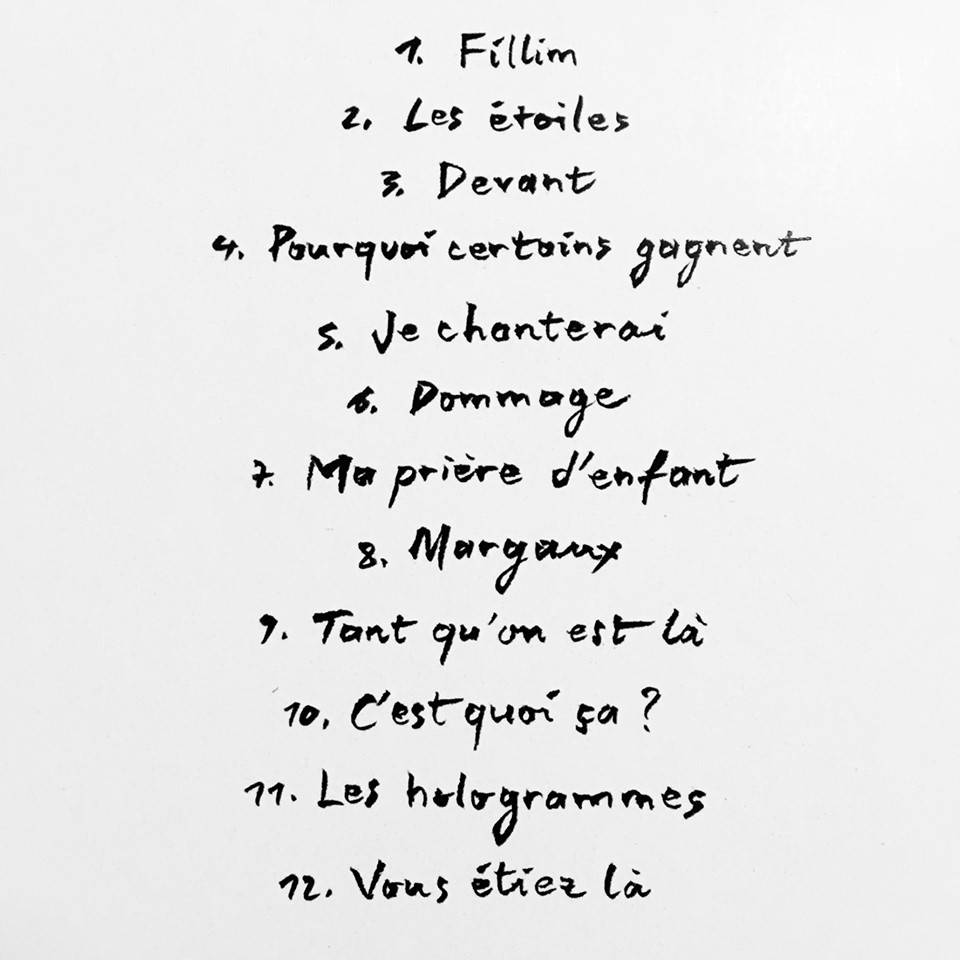 1. Fillim
2. Les étoiles
3. Devant
4. Pourquoi certains gagnent
5. Je chanterai
6. Dommage
7. Ma prière d'enfant
8. Margaux
9. Tant qu'on est là
10. C'est quoi ça ?
11. Les hologrammes
12. Vous étiez là